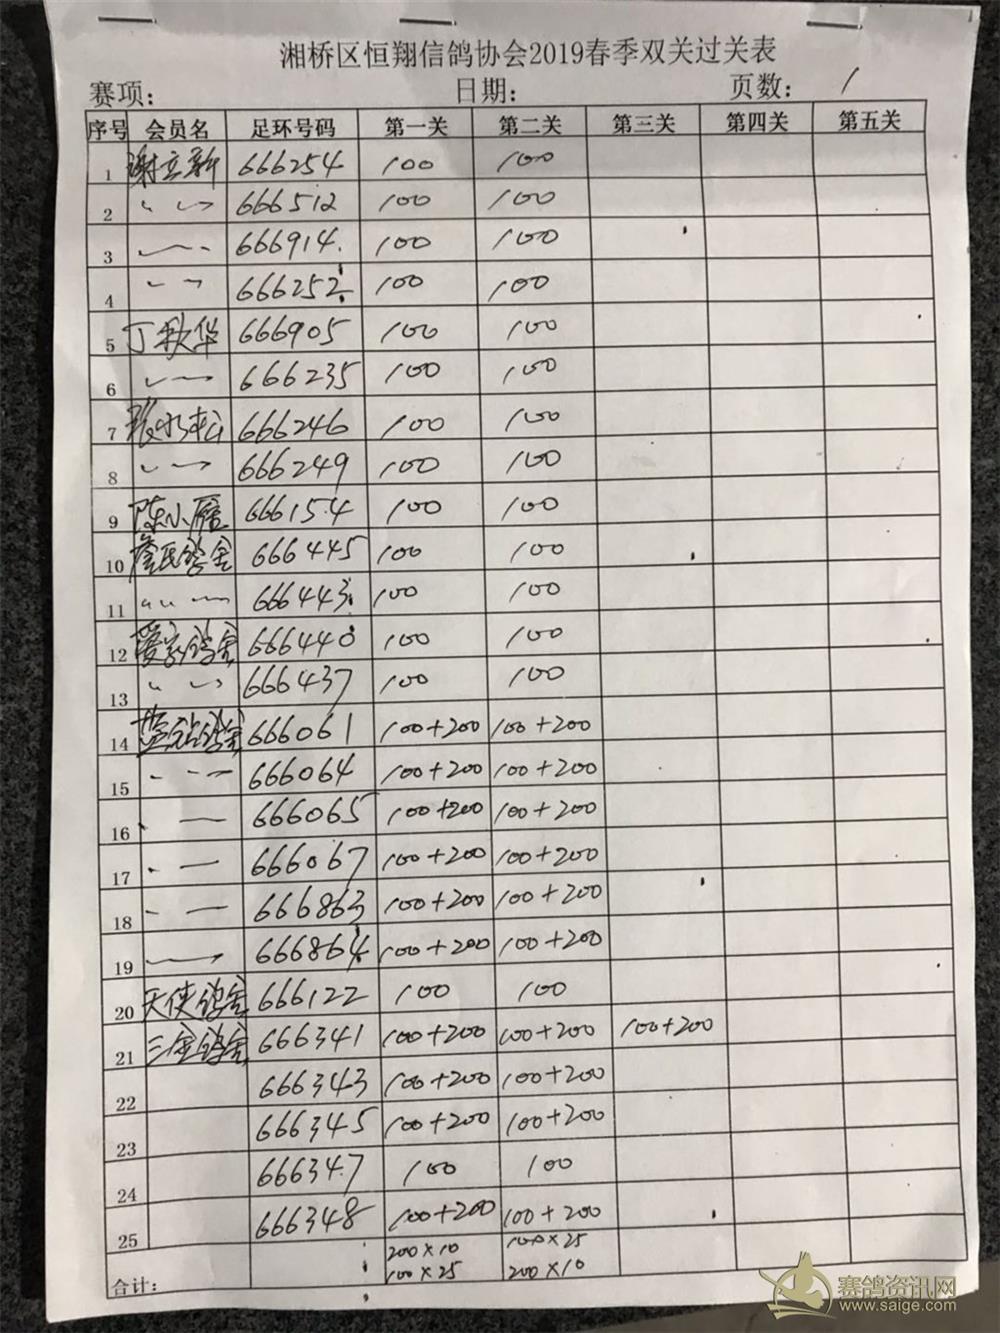 湘桥区恒翔信鸽协会2019春季双关过关表
赛项: 日期: 页数: 1
序号 会员名 足环号码 第一关 第二关 第三关 第四关 第五关
1 谢立新 666254 100 100
2 〃 666512 100 100
3 〃 666914 100 100
4 〃 666252 100 100
5 丁秋华 666905 100 100
6 〃 666235 100 100
7 666246 100 100
8 〃 666249 100 100
9 陈小雁 666154 100 100
10 詹氏鸽舍 666445 100 100
11 〃 666443 100 100
12 爱家鸽舍 666440 100 100
13 〃 666437 100 100
14 蓝钻鸽舍 666061 100+200 100+200
15 〃 666064 100+200 100+200
16 〃 666065 100+200 100+200
17 〃 666067 100+200 100+200
18 〃 666863 100+200 100+200
19 〃 666864 100+200 100+200
20 天使鸽舍 666122 100 100
21 三金鸽舍 666341 100+200 100+200 100+200
22 666343 100+200 100+200
23 666345 100+200 100+200
24 666347 100 100
25 666348 100+200 100+200
200×10 100×25
合计: 100×25 200×10
赛鸽资讯网
www.saige.com